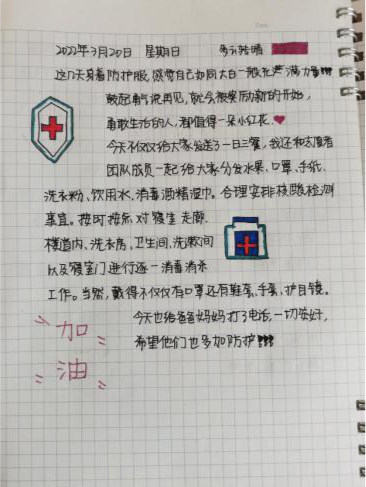 2022年3月20日 星期日 多云转晴
这几天穿着防护服,感觉自己如同大白一般充满力量!!!
鼓起勇气说再见,就会被奖励新的开始,
勇敢生活的人,都值得一朵小红花
今天不仅仅给大家发送了一日三餐,我还和志愿者
团队成员一起给大家分发水果、口罩、手纸、
洗衣粉、饮用水、消毒酒精湿巾。合理安排核酸检测
事宜。按时按点对寝室走廊、
楼道内、洗衣房、卫生间、洗漱间
以及寝室门进行逐一消毒消杀
工作。当然,戴得不仅仅有口罩还有鞋套、手套、护目镜。
今天也给爸爸妈妈打了电话,一切安好,
希望他们也多加防护!!!
加
油